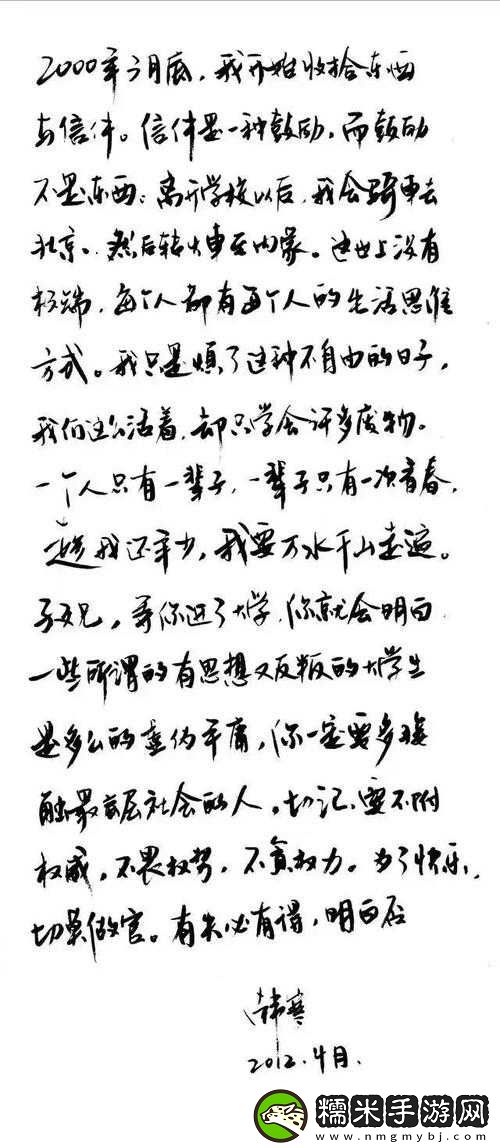 2000年3月底，我开始收拾东西
与信件。信件是一种鼓励，而鼓励
不是东西；离开学校以后，我会骑车去
北京，然后转火车至内蒙。这世上没有
极端，每个人都有每个人的生活思维
方式。我只是烦了这种不自由的日子，
我们这么活着，却只学会许多废物。
一个人只有一辈子，一辈子只有一次青春，
趁我还年少，我要万水千山走遍。
兄，等你进了大学，你就会明白
一些所谓的有思想又反叛的大学生
是多么的虚伪平庸，你一定要多接
触最底层社会的人。切记，要不附
权威，不畏权势，不贪权力。为了快乐，
切莫做官。有失必有得，明白否
韩寒
2012.4月.
糯米手游网
www.nmgmybj.com